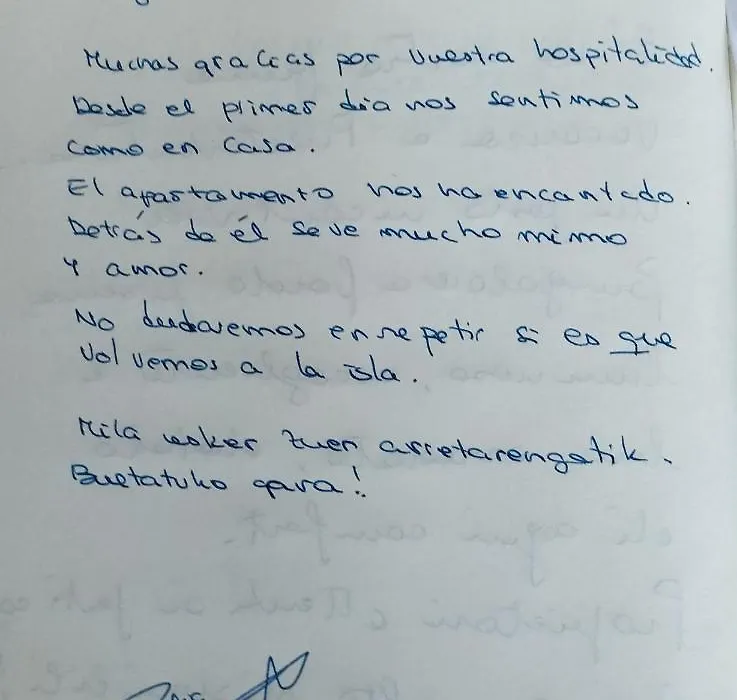 Muchas gracias por vuestra hospitalidad.
Desde el primer dia nos sentimos
como en casa.
El apartamento nos ha encantado.
Detrás de él se ve mucho mimo
y amor.
No dudaremos en repetir si es que
volvemos a la isla.
Mila esker zuen arretarengatik.
Bueltatuko gara!